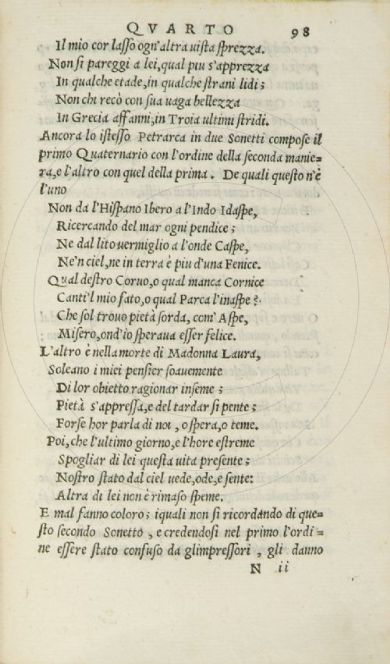 QVARTO 98
Il mio cor lasso ogn'altra uista sprezza.
Non si pareggi a lei, qual piu s'apprezza
In qualche etade, in qualche strani lidi;
Non chi recò con sua uaga bellezza
In Grecia affanni, in Troia ultimi stridi.
Ancora lo istesso Petrarca in due Sonetti compose il
primo Quaternario con l'ordine della seconda manie=
ra, e l'altro con quel della prima. De quali questo n'è
l'uno
Non da l'Hispano Ibero a l'Indo Idaspe,
Ricercando del mar ogni pendice;
Ne dal lito uermiglio a l'onde Caspe,
Ne'n ciel, ne in terra è piu d'una Fenice.
Qual destro Coruo, o qual manca Cornice
Canti'l mio fato, o qual Parca l'inaspe?
Che sol trouo pietà sorda, com'Aspe,
Misero, ond'io speraua esser felice.
L'altro è nella morte di Madonna Laura,
Soleano i miei pensier soauemente
Di lor obietto ragionar inseme;
Pietà s'appressa, e del tardar si pente;
Forse hor parla di noi, o spera, o teme.
Poi, che l'ultimo giorno, e l'hore estreme
Spogliar di lei questa uita presente;
Nostro stato dal ciel uede, ode, e sente:
Altra di lei non è rimaso speme.
E mal fanno coloro; iquali non si ricordando di que=
sto secondo Sonetto, e credendosi nel primo l'ordi=
ne essere stato confuso da glimpressori, gli danno
N ii